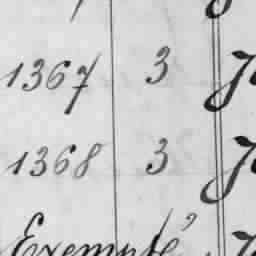 1367 3
1368 3
Exempté